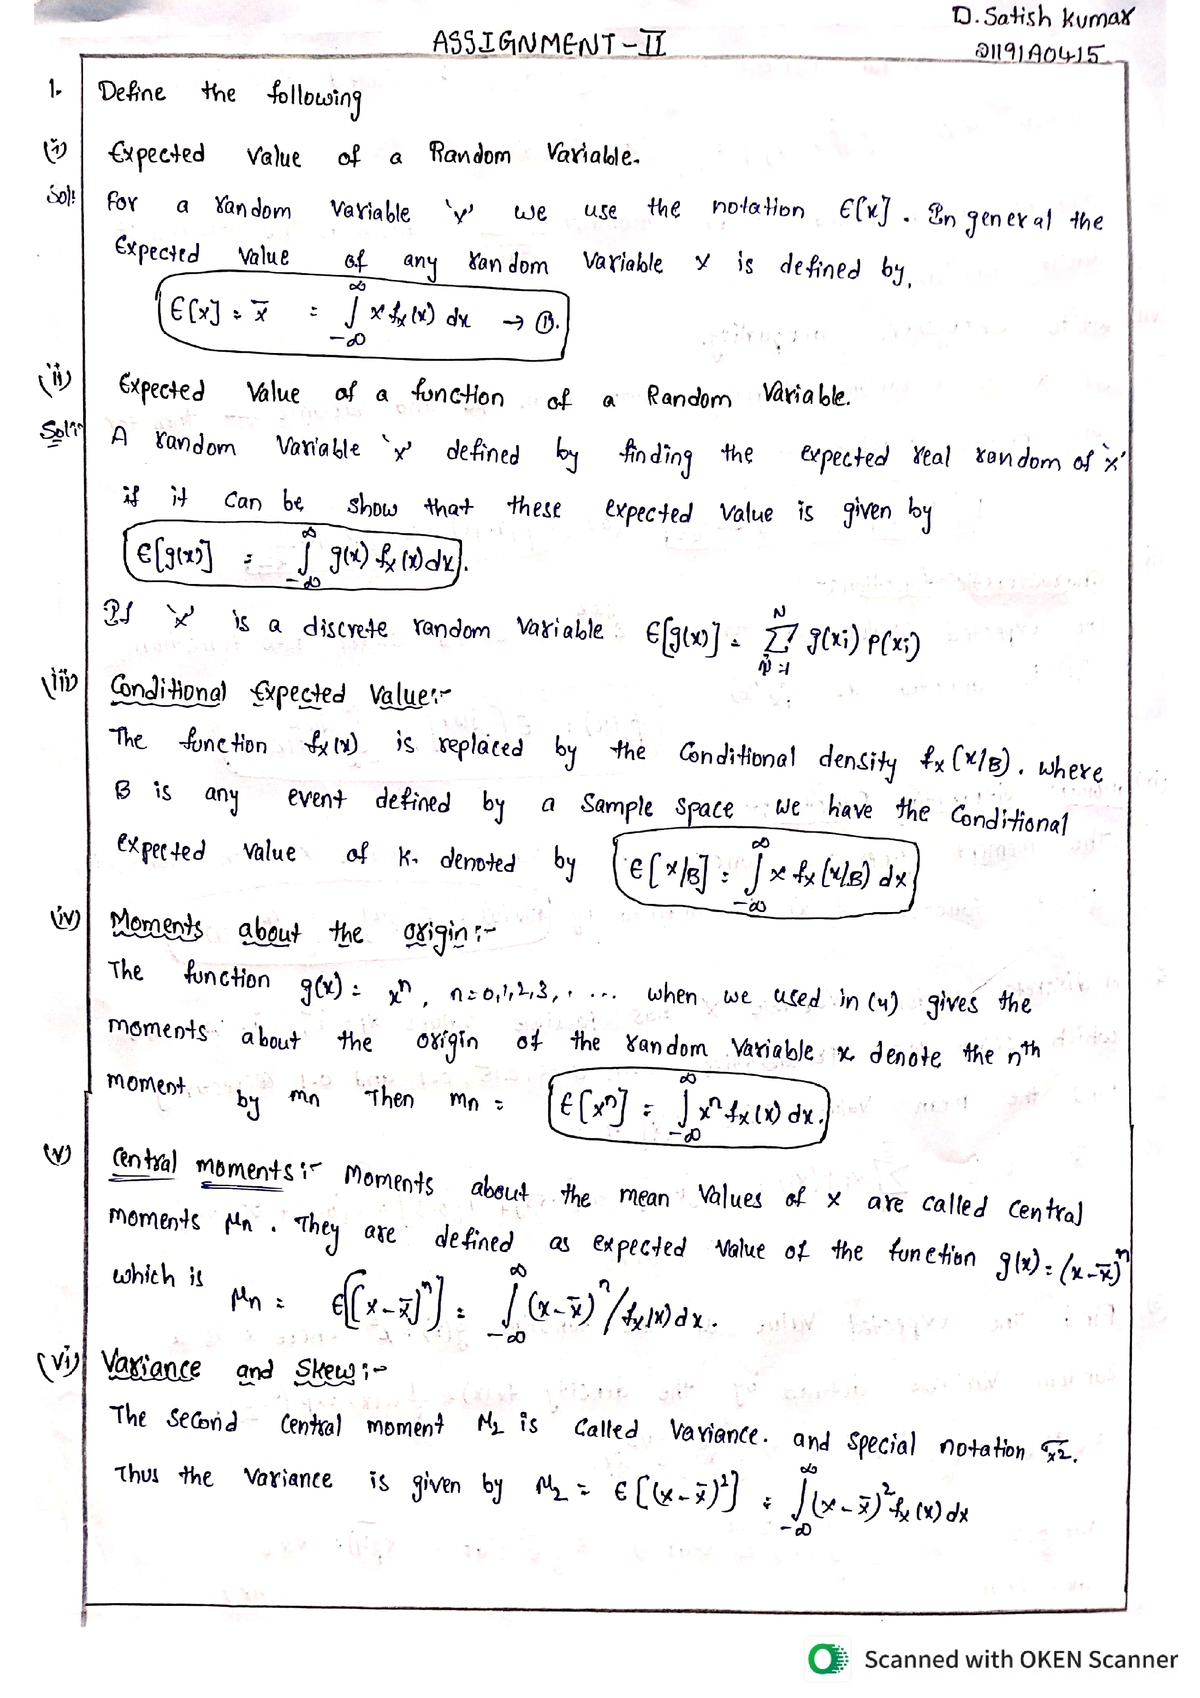 D. Satish Kumar
ASSIGNMENT - II
21191A0415
1. Define the following
(i) Expected Value of a Random Variable.
Sol: For a random Variable 'x' we use the notation E[x]. In general the
Expected Value of any random Variable x is defined by,
E[x] = x̄ = ∫_{-∞}^{∞} x fx(x) dx → ①.
(ii) Expected Value of a function of a Random Variable.
Sol: A random Variable 'x' defined by finding the expected real random of 'x'
if it can be show that these expected value is given by
E[g(x)] = ∫_{-∞}^{∞} g(x) fx(x) dx.
If 'x' is a discrete random Variable E[g(x)] = Σ^{N} g(xi) P(xi)
(iii) Conditional Expected Value:-
The function fx(x) is replaced by the Conditional density fx(x/B). where
B is any event defined by a Sample space we have the Conditional
expected value of K. denoted by E[x/B] = ∫_{-∞}^{∞} x fx(x/B) dx
(iv) Moments about the origin:-
The function g(x) = xⁿ, n=0,1,2,3, .... when we used in (4) gives the
moments about the origin of the random Variable x denote the nth
moment by mn Then mn = E[xⁿ] = ∫_{-∞}^{∞} xⁿ fx(x) dx.
(v) Central moments:- Moments about the mean Values of x are called Central
moments μn. They are defined as expected value of the function g(x) = (x-x̄)ⁿ
which is μn = E[(x-x̄)ⁿ] = ∫_{-∞}^{∞} (x-x̄)ⁿ / fx(x) dx.
(vi) Variance and Skew:-
The Second Central moment μ2 is Called Variance. and special notation σx2.
Thus the Variance is given by μ2 = E[(x-x̄)²] = ∫_{-∞}^{∞} (x-x̄)² fx(x) dx
Scanned with OKEN Scanner